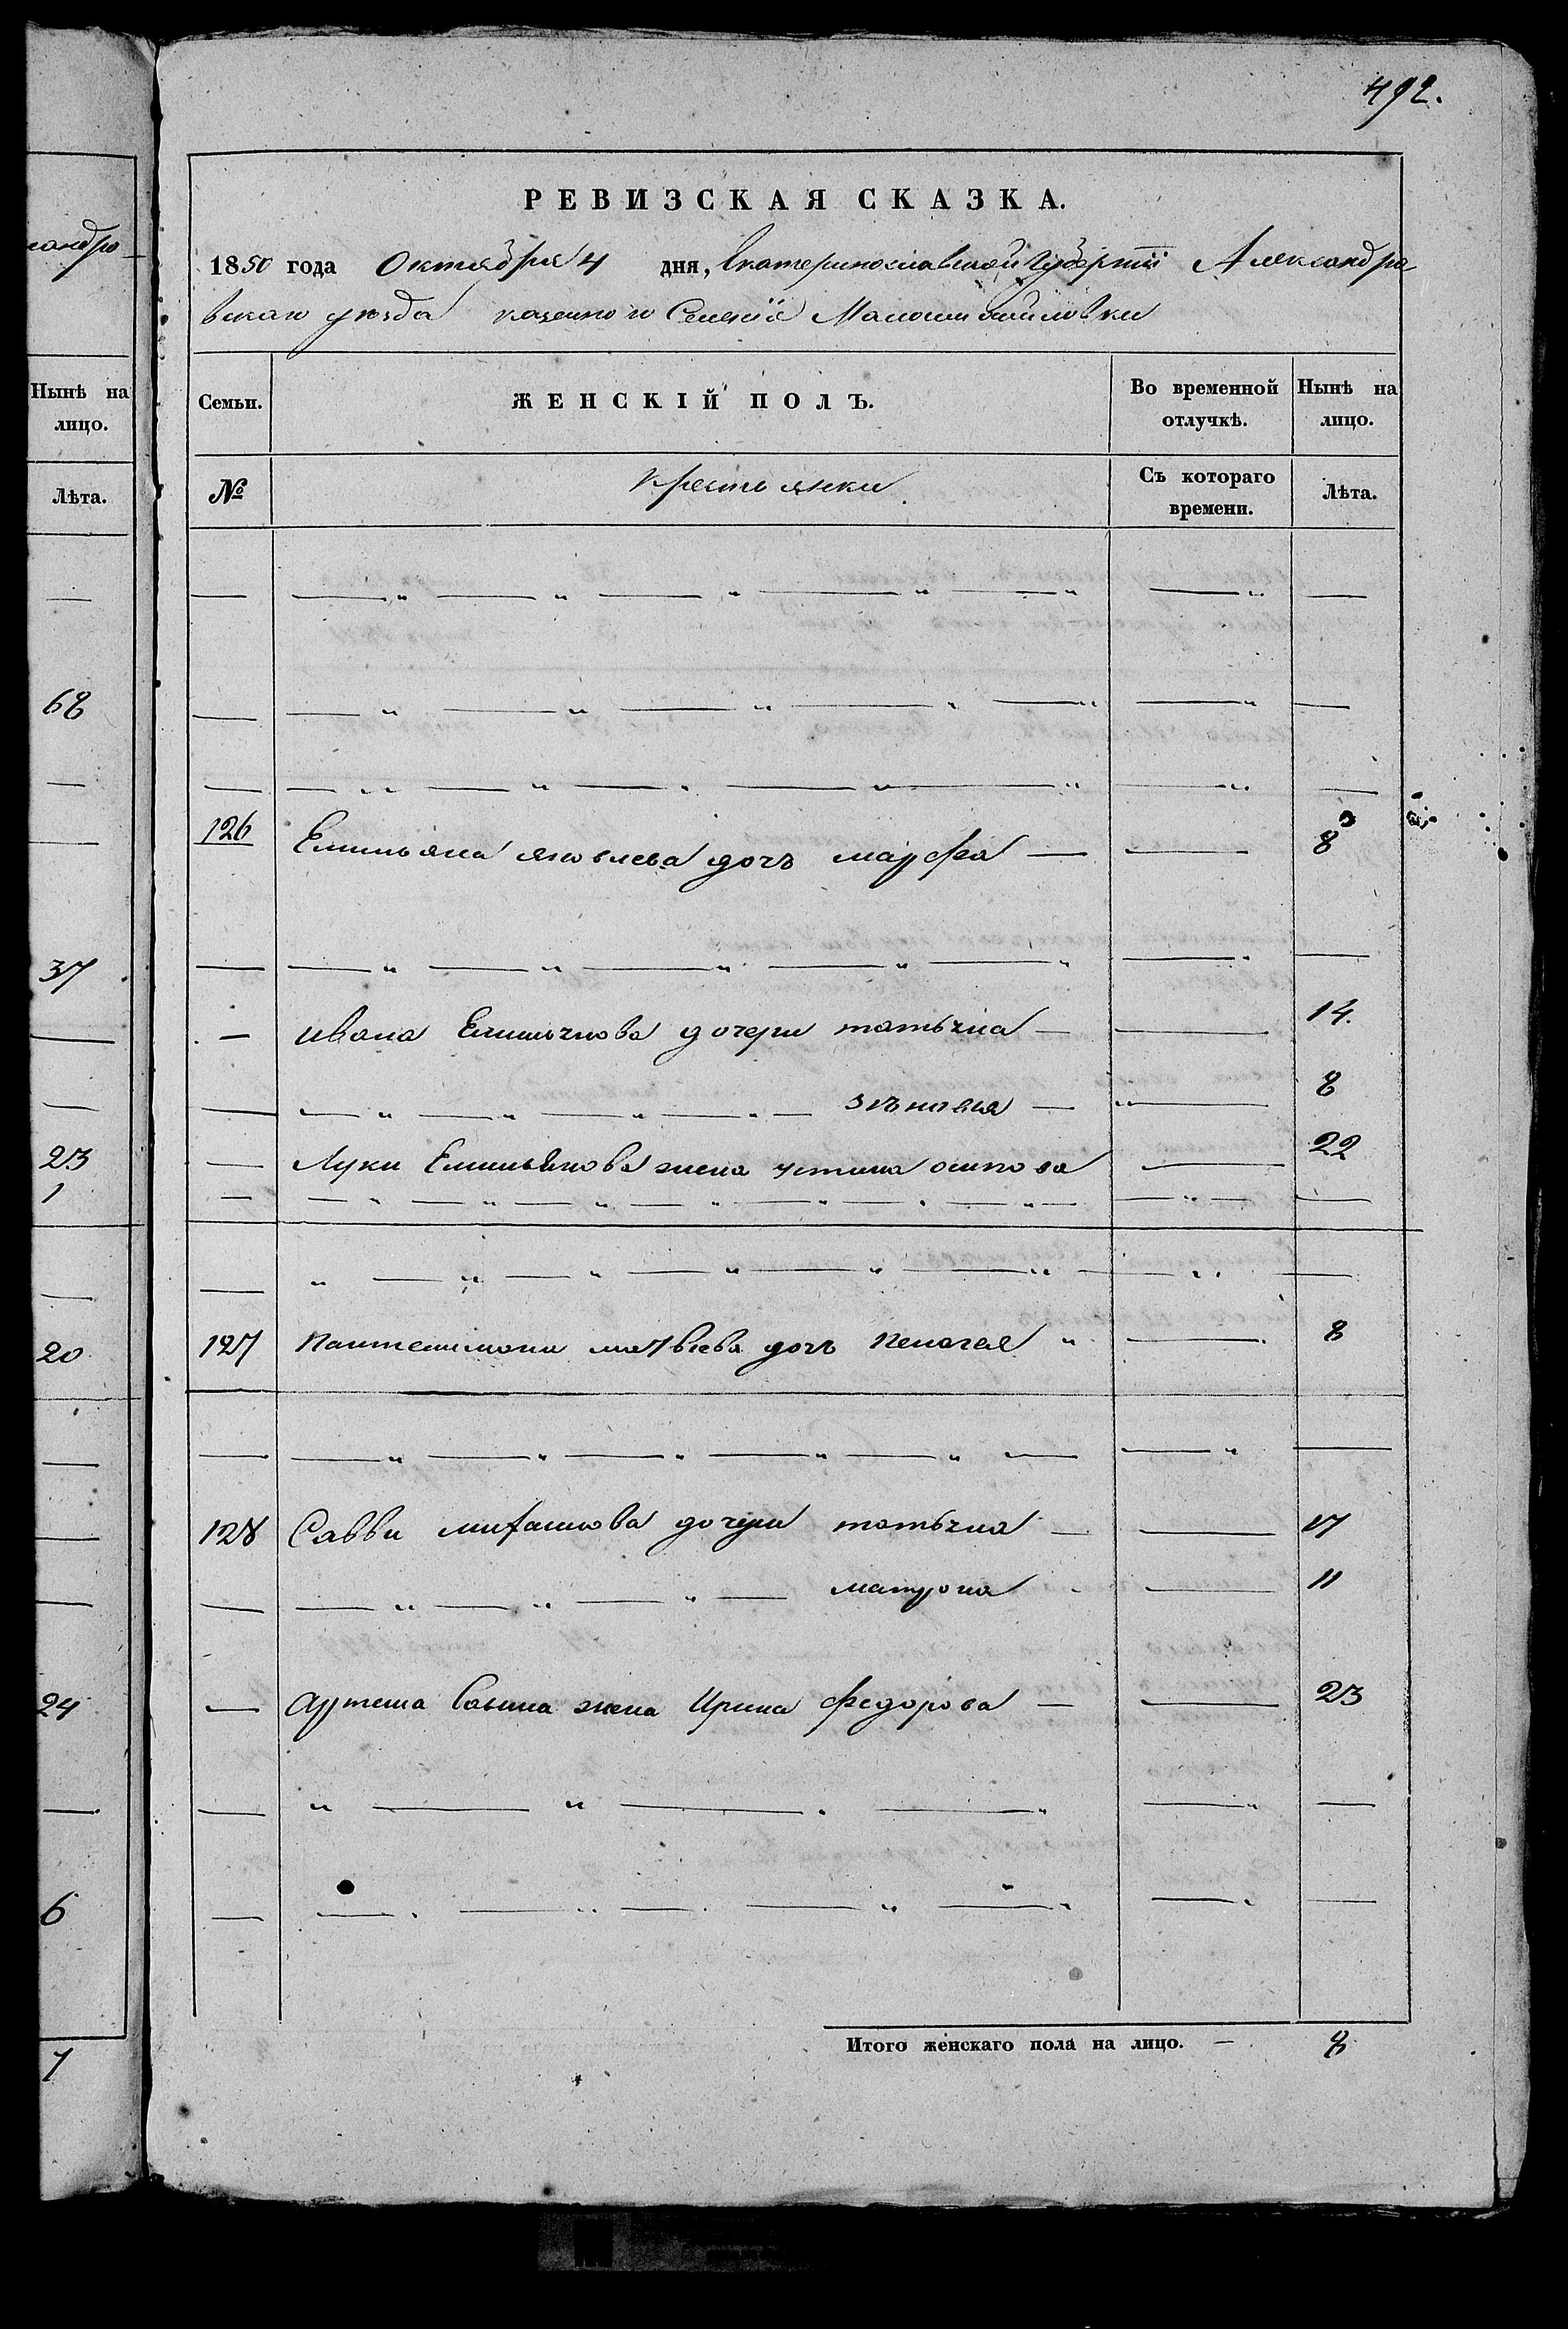 492.
РЕВИЗСКАЯ СКАЗКА.
1850 года Октября 4 дня, Екатеринославской Губернiи Александро
вскаго уезда казенного Селенiя Маломихайловки
Семьи. ЖЕНСКIЙ ПОЛЪ. Во временной отлучкѣ. Нынѣ на лицо.
№ Крестьянки Съ котораго времени. Лѣта.
126 Емильяна яковлева дочь марфа — — 8
— ивана Емильянова дочери татьяна — — 14.
— зѣновия — — 8
— Луки Емильянова жена устина осипова — 22
127 Пантелимона матвѣева дочь Пелагея — 8
128 Саввы михайлова дочери татьяна — — 17
— матрона — 11
— артема савина жена Ирина федорова — — 23
Итого женскаго пола на лицо. — 8
сандро
Нынѣ на
лицо.
Лѣта.
68
37
23
1
20
24
6
7